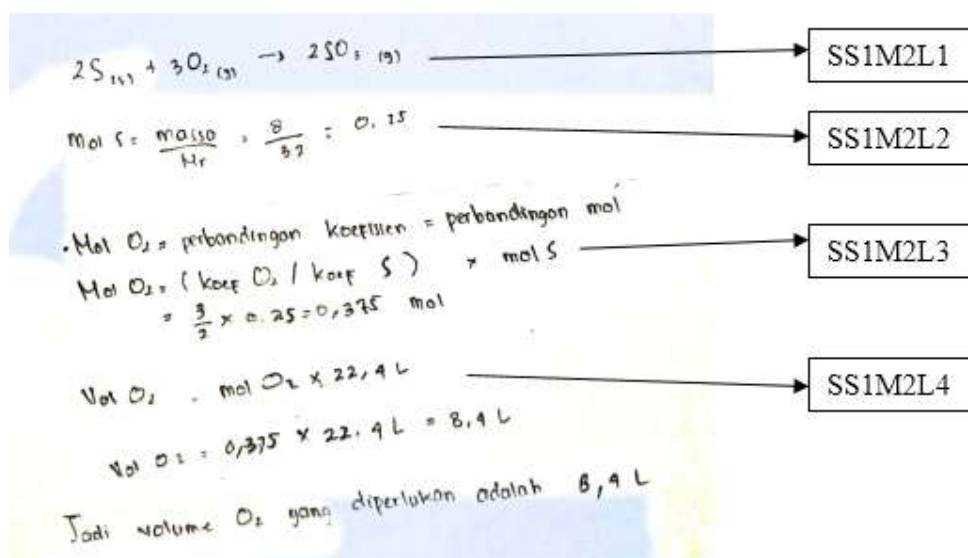 2S (s) + 3O₂ (g) → 2SO₃ (g)
SS1M2L1
Mol S = massa / Mr = 8 / 32 = 0.25
SS1M2L2
• Mol O₂ = perbandingan koefisien = perbandingan mol
Mol O₂ = (koef O₂ / koef S) × mol S
SS1M2L3
= 3/2 × 0.25 = 0,375 mol
Vol O₂ = mol O₂ × 22,4 L
SS1M2L4
Vol O₂ = 0,375 × 22.4 L = 8,4 L
Jadi volume O₂ yang diperlukan adalah 8,4 L